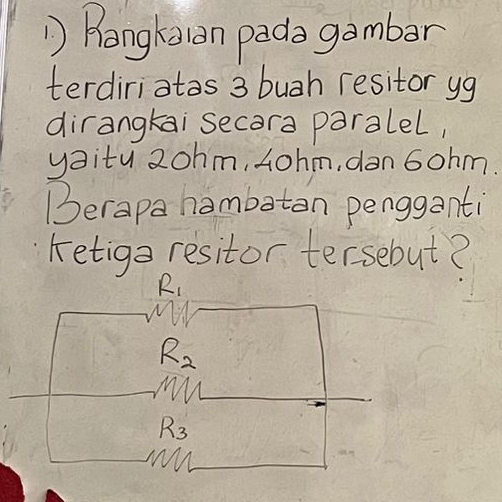 1.) Rangkaian pada gambar
terdiri atas 3 buah resitor yg
dirangkai secara paralel,
yaitu 2 ohm, 4 ohm, dan 6 ohm.
Berapa hambatan pengganti
ketiga resitor tersebut?
R1
R2
R3